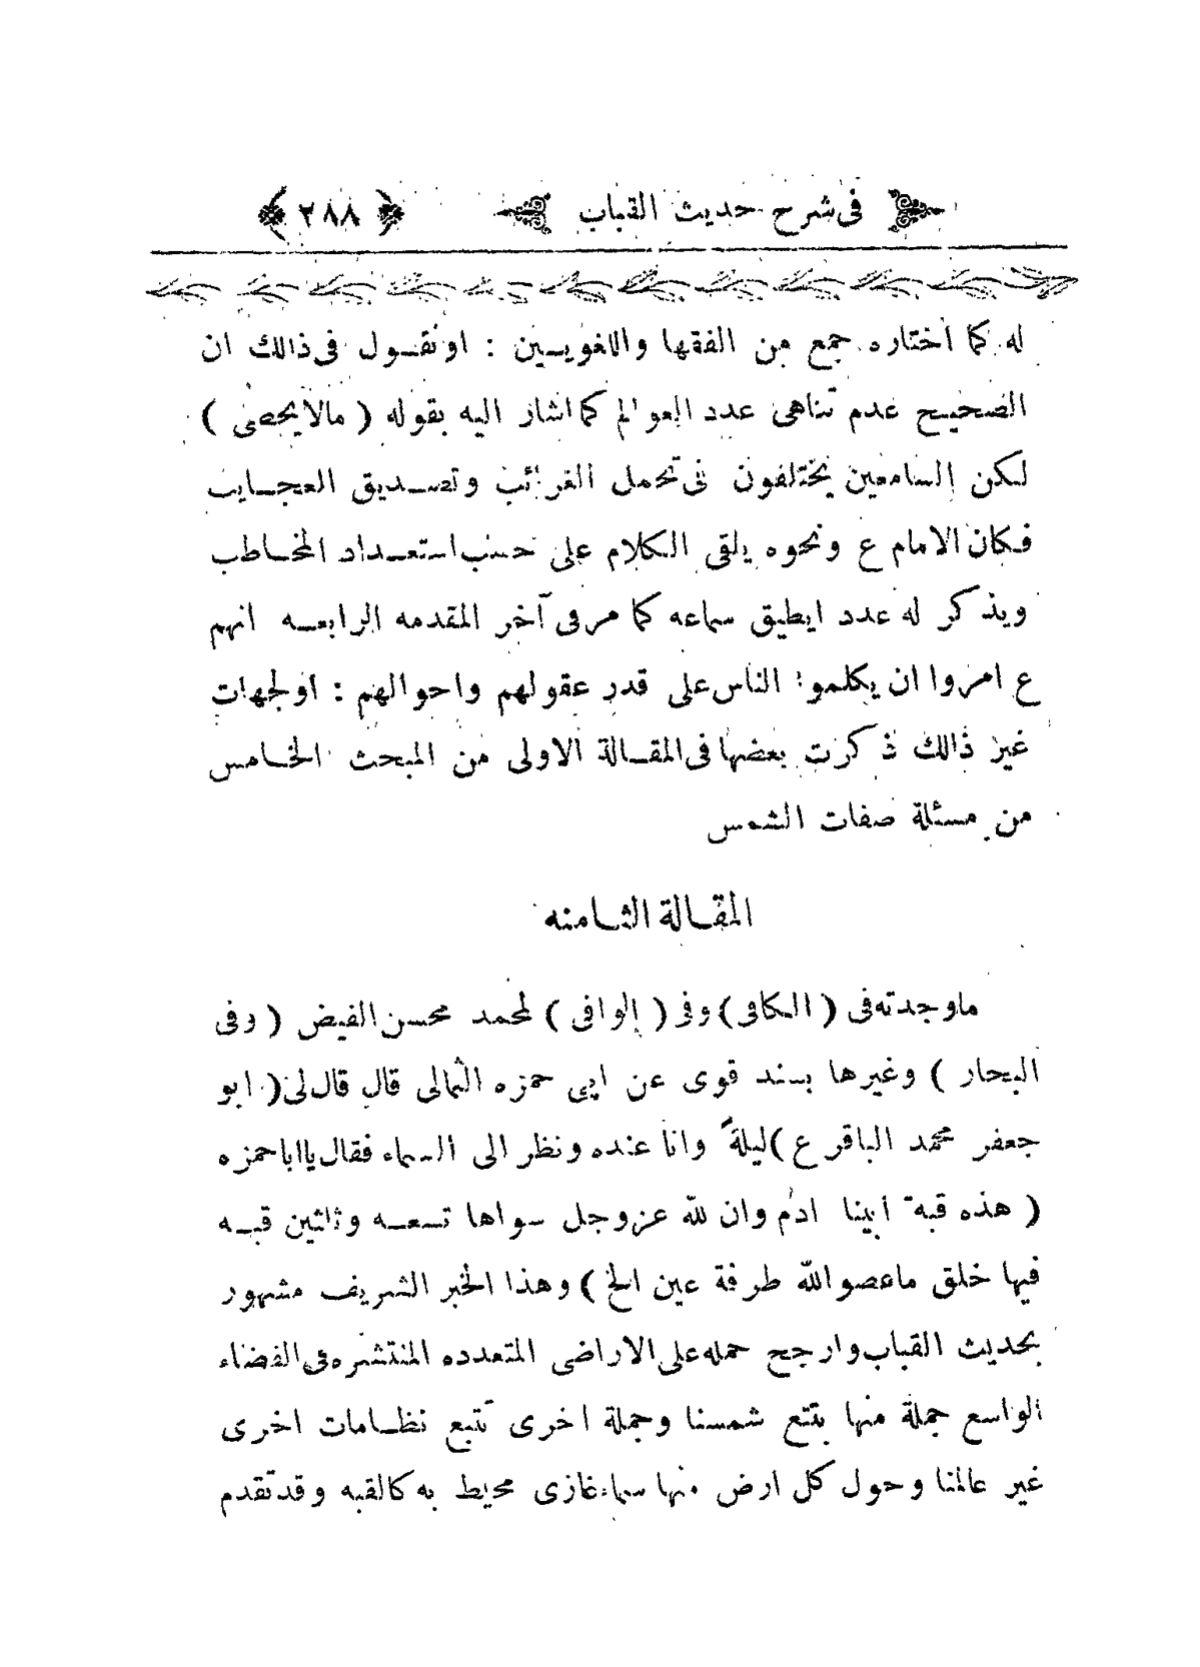 فى شرح حديث القباب ﴿ ٢٨٨ ﴾
له كما اختاره جمع من الفقها واللغويــين : اونقــول فى ذالك ان
الصحيــح عدم تناهى عدد العوالم كما اشار اليه بقوله ( مالايحصى )
لـكن السامعين يختلفون فى تحمل الغرائب وتصــديق العجــايب
فـكان الامام ع ونحوه يلقى الـكلام على حسب استعــداد المخــاطب
ويذكر له عدد ايطيق سماعه كما مر فى آخر المقدمه الرابعــه انهم
ع امروا ان يكلموا الناس على قدر عقولهم واحوالهم : اولجهات
غير ذالك ذكرت بعضها فى المقــالة الاولى من المبحث الخــامس
من مسئلة صفات الشمس
المقــالة الثــامنه
ماوجدته فى ( الـكافى ) وفى ( الوافى ) لمحمد محسن الفيض ( وفى
البحار ) وغيرها بسند قوى عن ابى حمزه الثمالى قال قال لى ( ابو
جعفر محمد الباقر ع ) ليلةً وانا عنده ونظر الى السماء فقال يااباحمزه
( هذه قبة ابينا ادم وان لله عزوجل سواها تسعــه وثلثين قبــه
فيها خلق ماعصوالله طرفة عين الخ ) وهذا الخبر الشريف مشهور
بحديث القباب وارجح حمله على الاراضى المتعدده المنتشره فى الفضاء
الواسع جملة منها يتبع شمسنا وجملة اخرى تتبع نظــامات اخرى
غير عالمنا وحول كل ارض منها سماء غازى محيط به كالقبه وقد تقدم